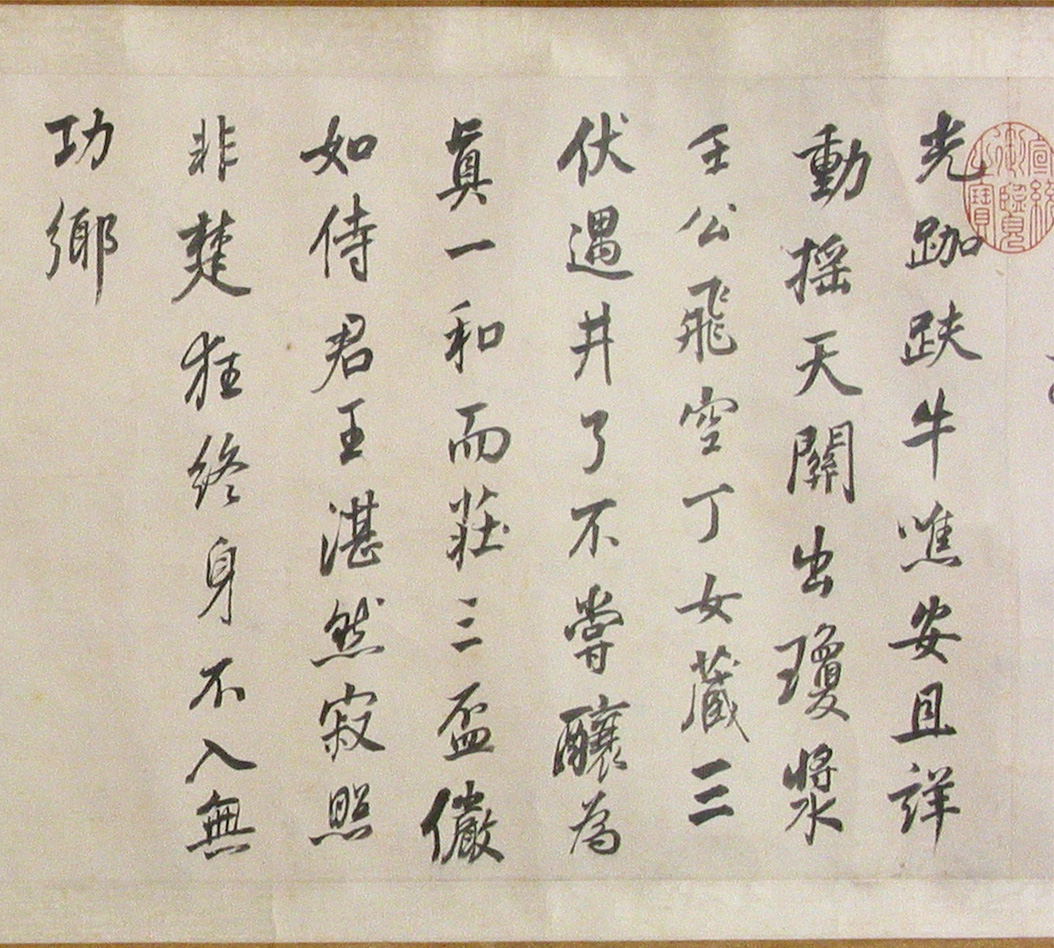 光跏趺牛噍安且詳
動搖天關出瓊漿
壬公飛空丁女藏三
伏遇井了不嘗釀為
真一和而莊三盃儼
如侍君王湛然寂照
非楚狂終身不入無
功鄉
宣統御覽之寶